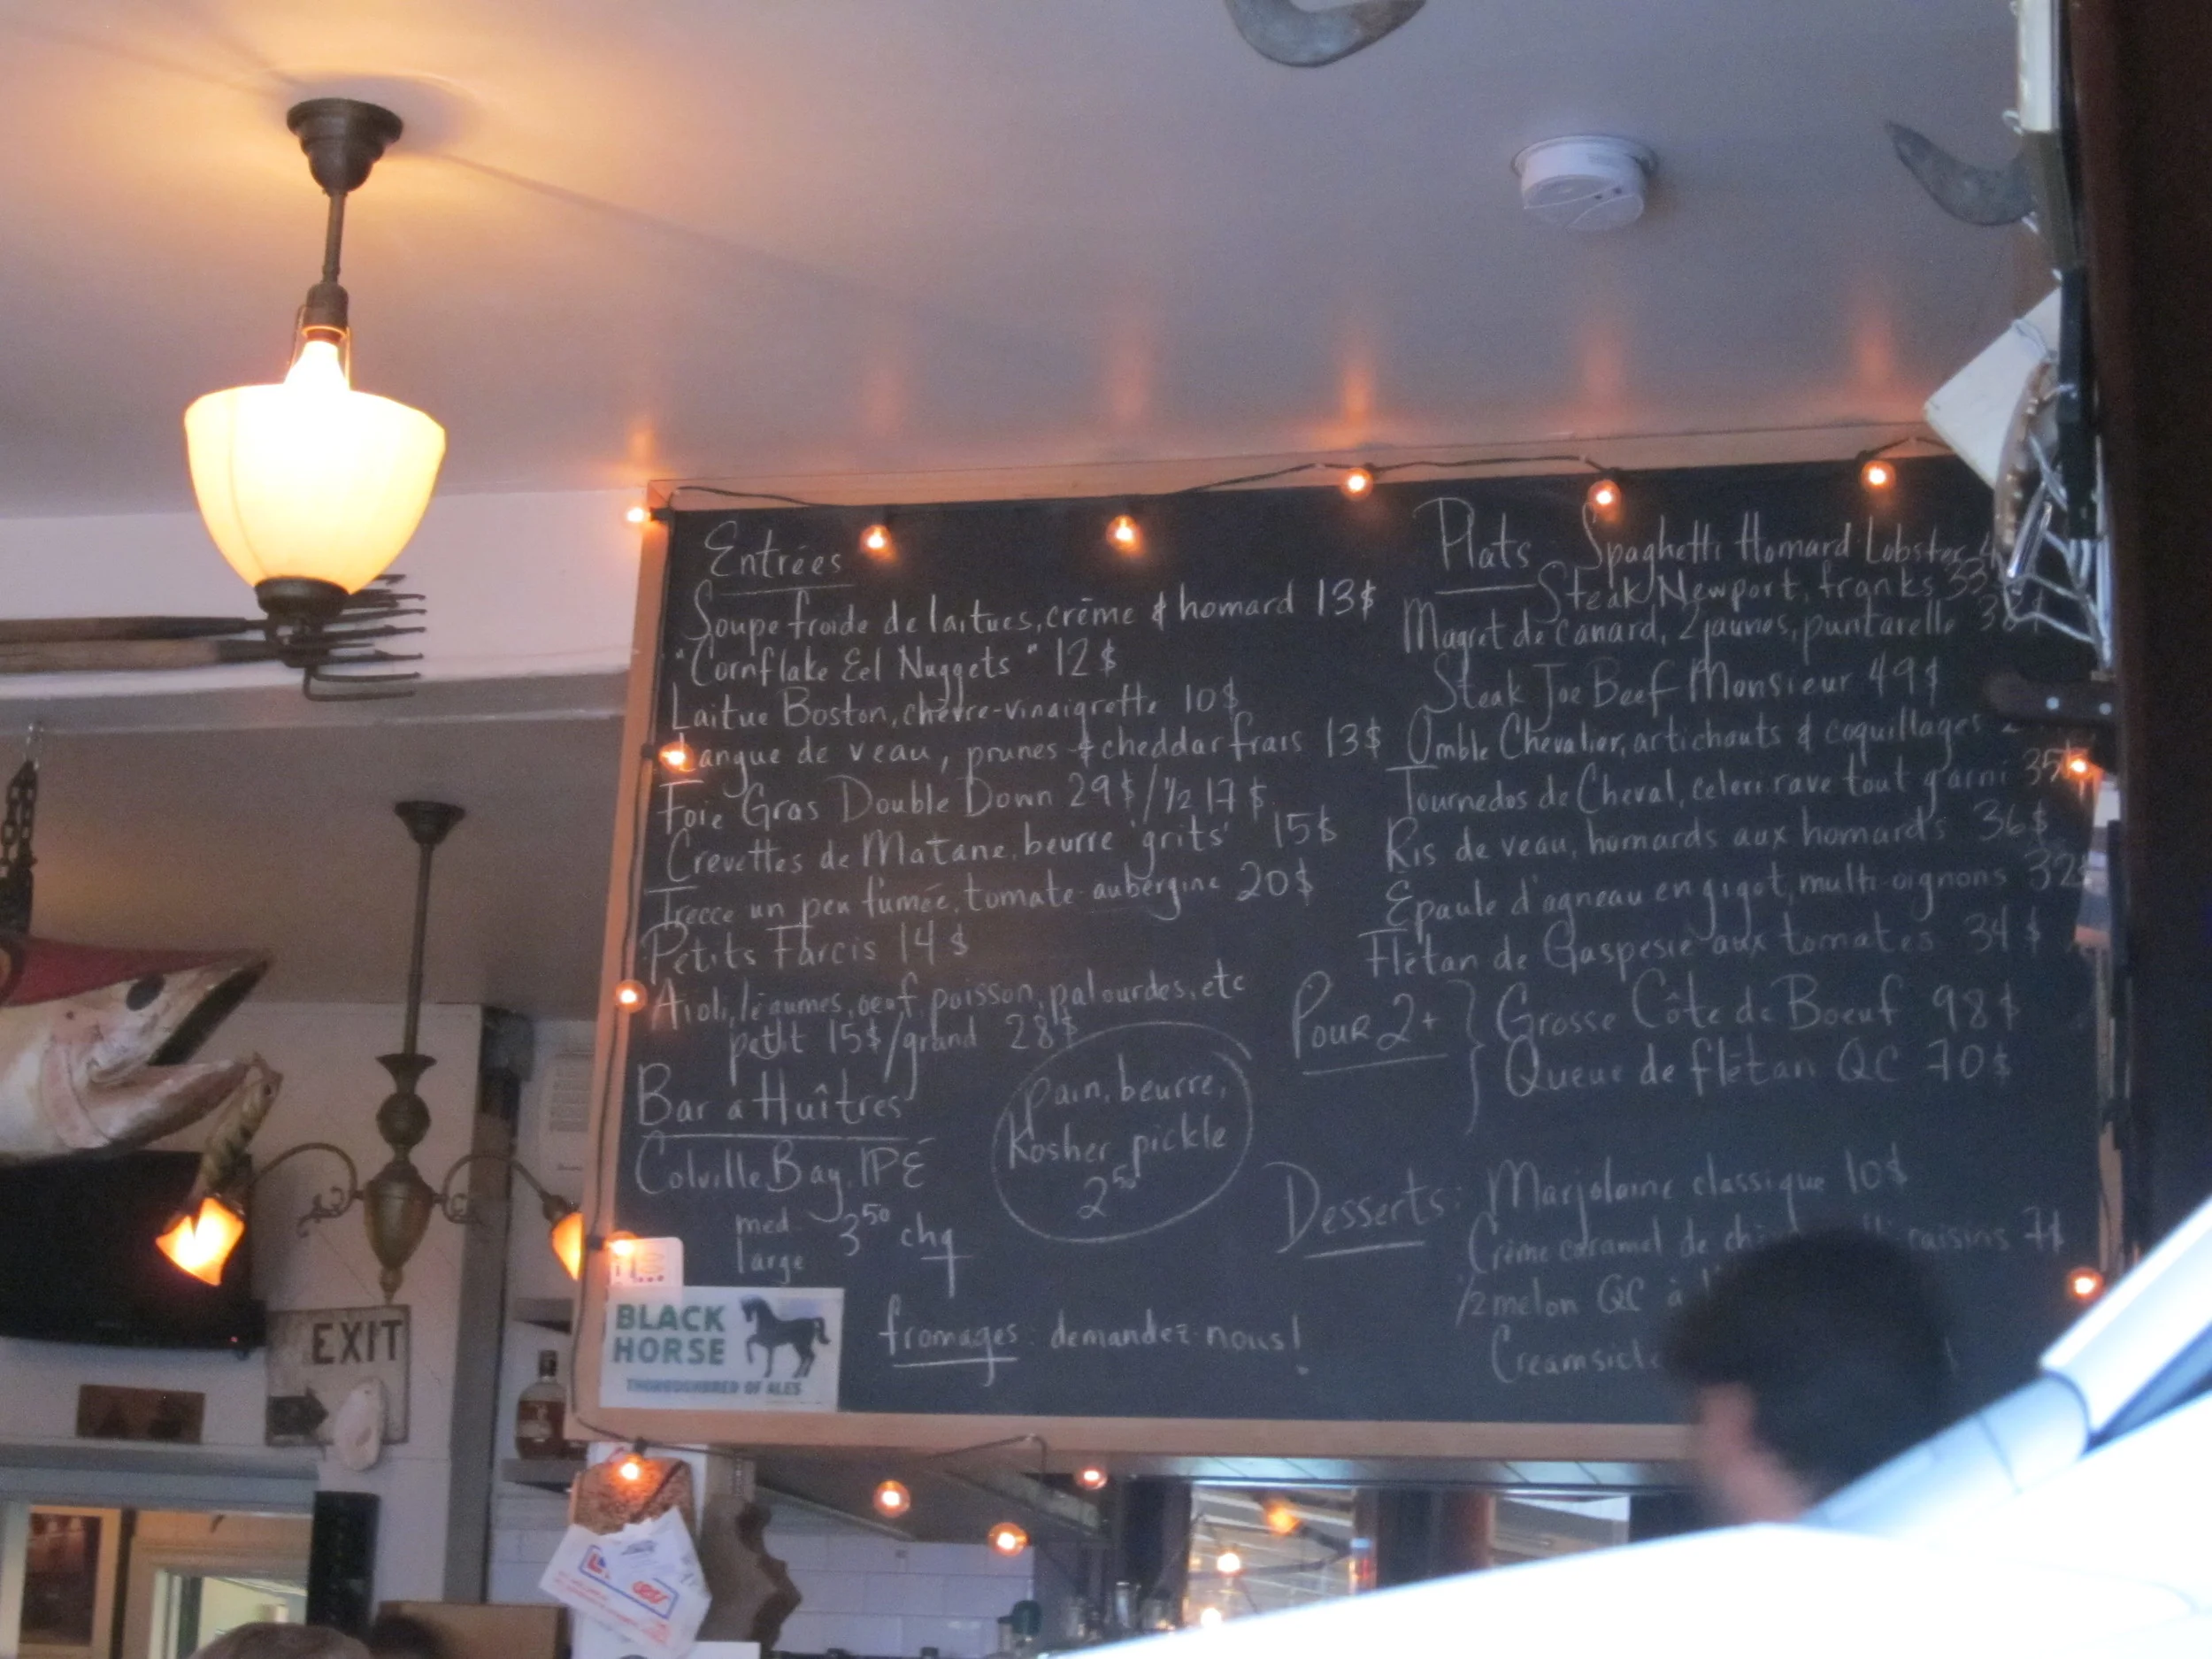 Entrées
Soupe froide de laitues, crème & homard 13$
"Cornflake Eel Nuggets" 12$
Laitue Boston, chèvre-vinaigrette 10$
Langue de veau, prunes & cheddar frais 13$
Foie Gras Double Down 29$/½ 17$
Crevettes de Matane, beurre 'grits' 15$
Trecce un peu fumée, tomate-aubergine 20$
Petits Farcis 14$
Aioli, légumes, oeuf, poisson, palourdes, etc
petit 15$/grand 28$
Bar a Huîtres
Colville Bay, IPÉ
med
large
3⁵⁰ chq
pain, beurre,
Kosher pickle
2⁵⁰
fromages: demandez-nous!
Plats
Spaghetti Homard Lobster
Steak Newport, franks 33
Magret de canard, 2 jaunes, puntarelle
Steak Joe Beef Monsieur 49$
Omble Chevalier, artichauts & coquillages
Tournedos de Cheval, celeri rave tout garni 35$
Ris de veau, homards aux homards 36$
Épaule d'agneau en gigot, multi-oignons 32$
Flétan de Gaspesie aux tomates 34$
Pour 2+
Grosse Côte de Boeuf 98$
Queue de flétan QC 70$
Desserts:
Marjolaine classique 10$
Crème caramel de raisins 7$
½ melon QC à
Creamsicle
BLACK
HORSE
THOROUGHBRED OF ALES
EXIT